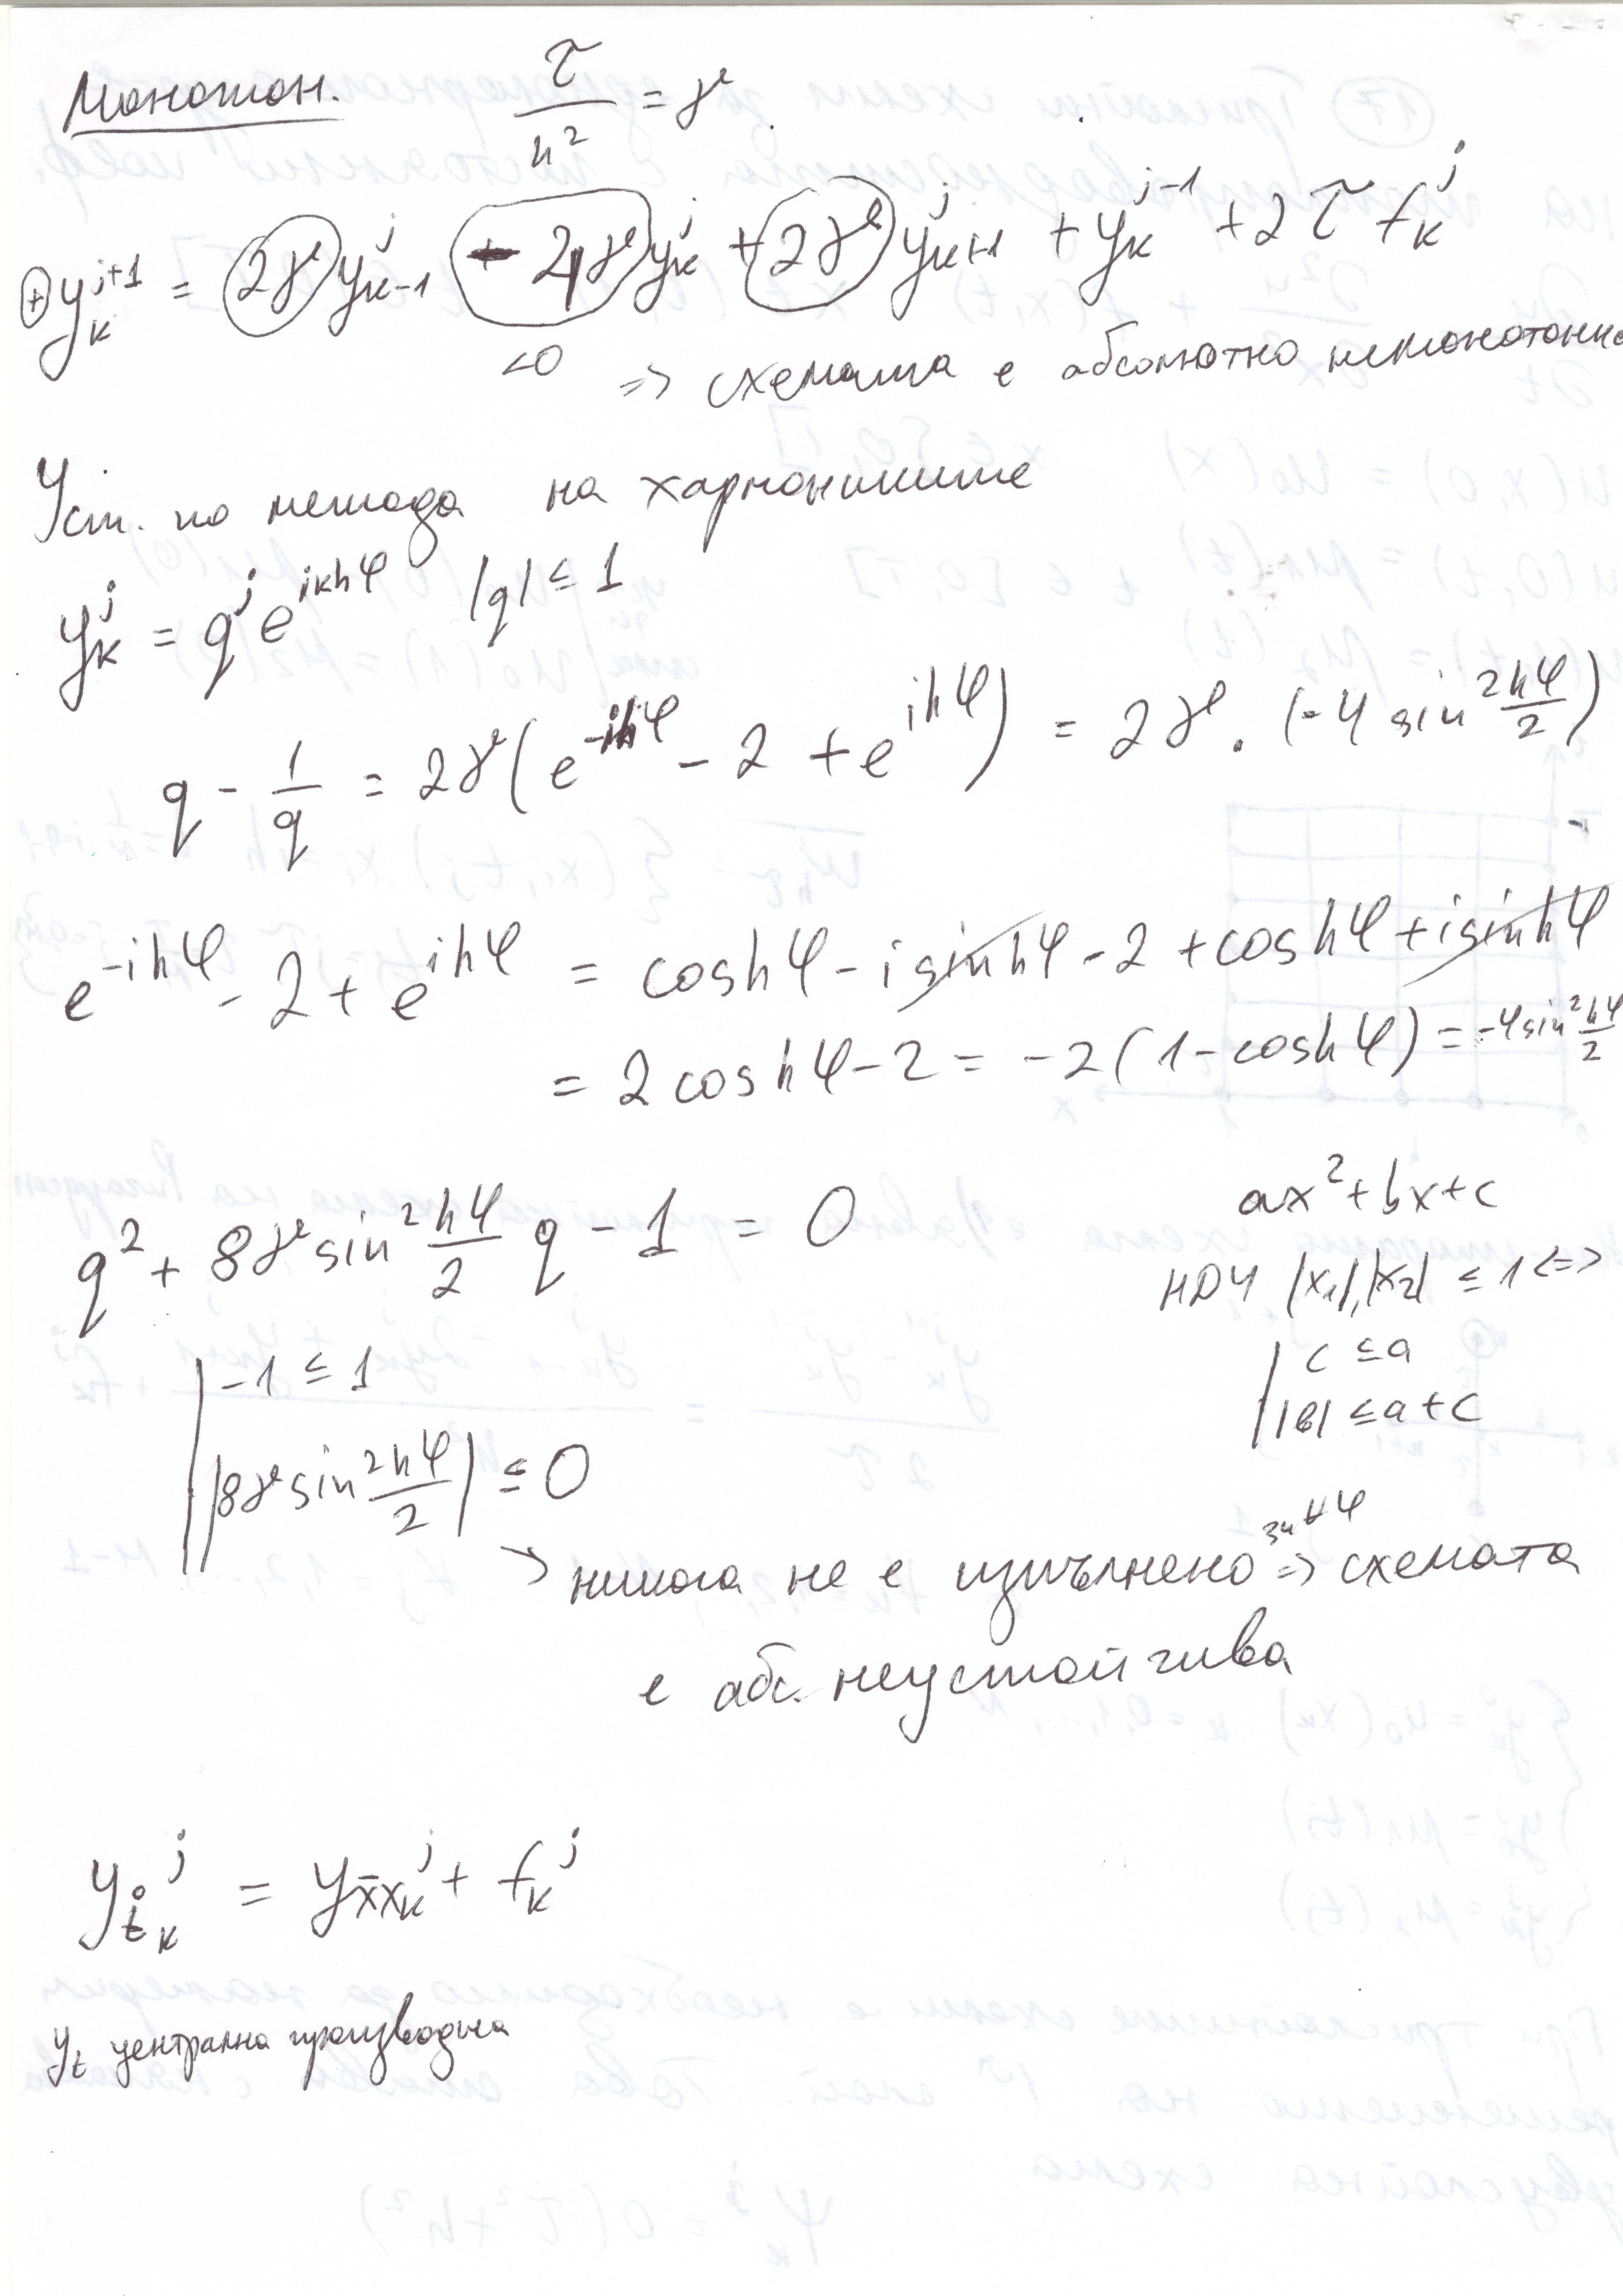 Монотон. τ/h² = γ
⊕ y_k^{j+1} = 2γ y_{k-1}^j - 4γ y_k^j + 2γ y_{k+1}^j + y_k^{j-1} + 2τ f_k^j
<0 => схемата е абсолютно немонотонна
Уст. по метода на хармониките
y_k^j = q^j e^{ikhφ} |q| ≤ 1
q - 1/q = 2γ(e^{-ihφ} - 2 + e^{ihφ}) = 2γ . (-4 sin² hφ/2)
e^{-ihφ} - 2 + e^{ihφ} = cos hφ - i sin hφ - 2 + cos hφ + i sin hφ
= 2 cos hφ - 2 = -2(1 - cos hφ) = -4 sin² hφ/2
ax² + bx + c
q² + 8γ sin² hφ/2 q - 1 = 0
НДУ |x₁|,|x₂| ≤ 1 <=>
| c ≤ a
| -1 ≤ 1
| |b| ≤ a + c
| |8γ sin² hφ/2| ≤ 0
за ∀φ
→ никога не е изпълнено => схемата
е абс. неустойчива
y_{t̊ k}^j = y_{x̄x k}^j + f_k^j
y_t централна производна